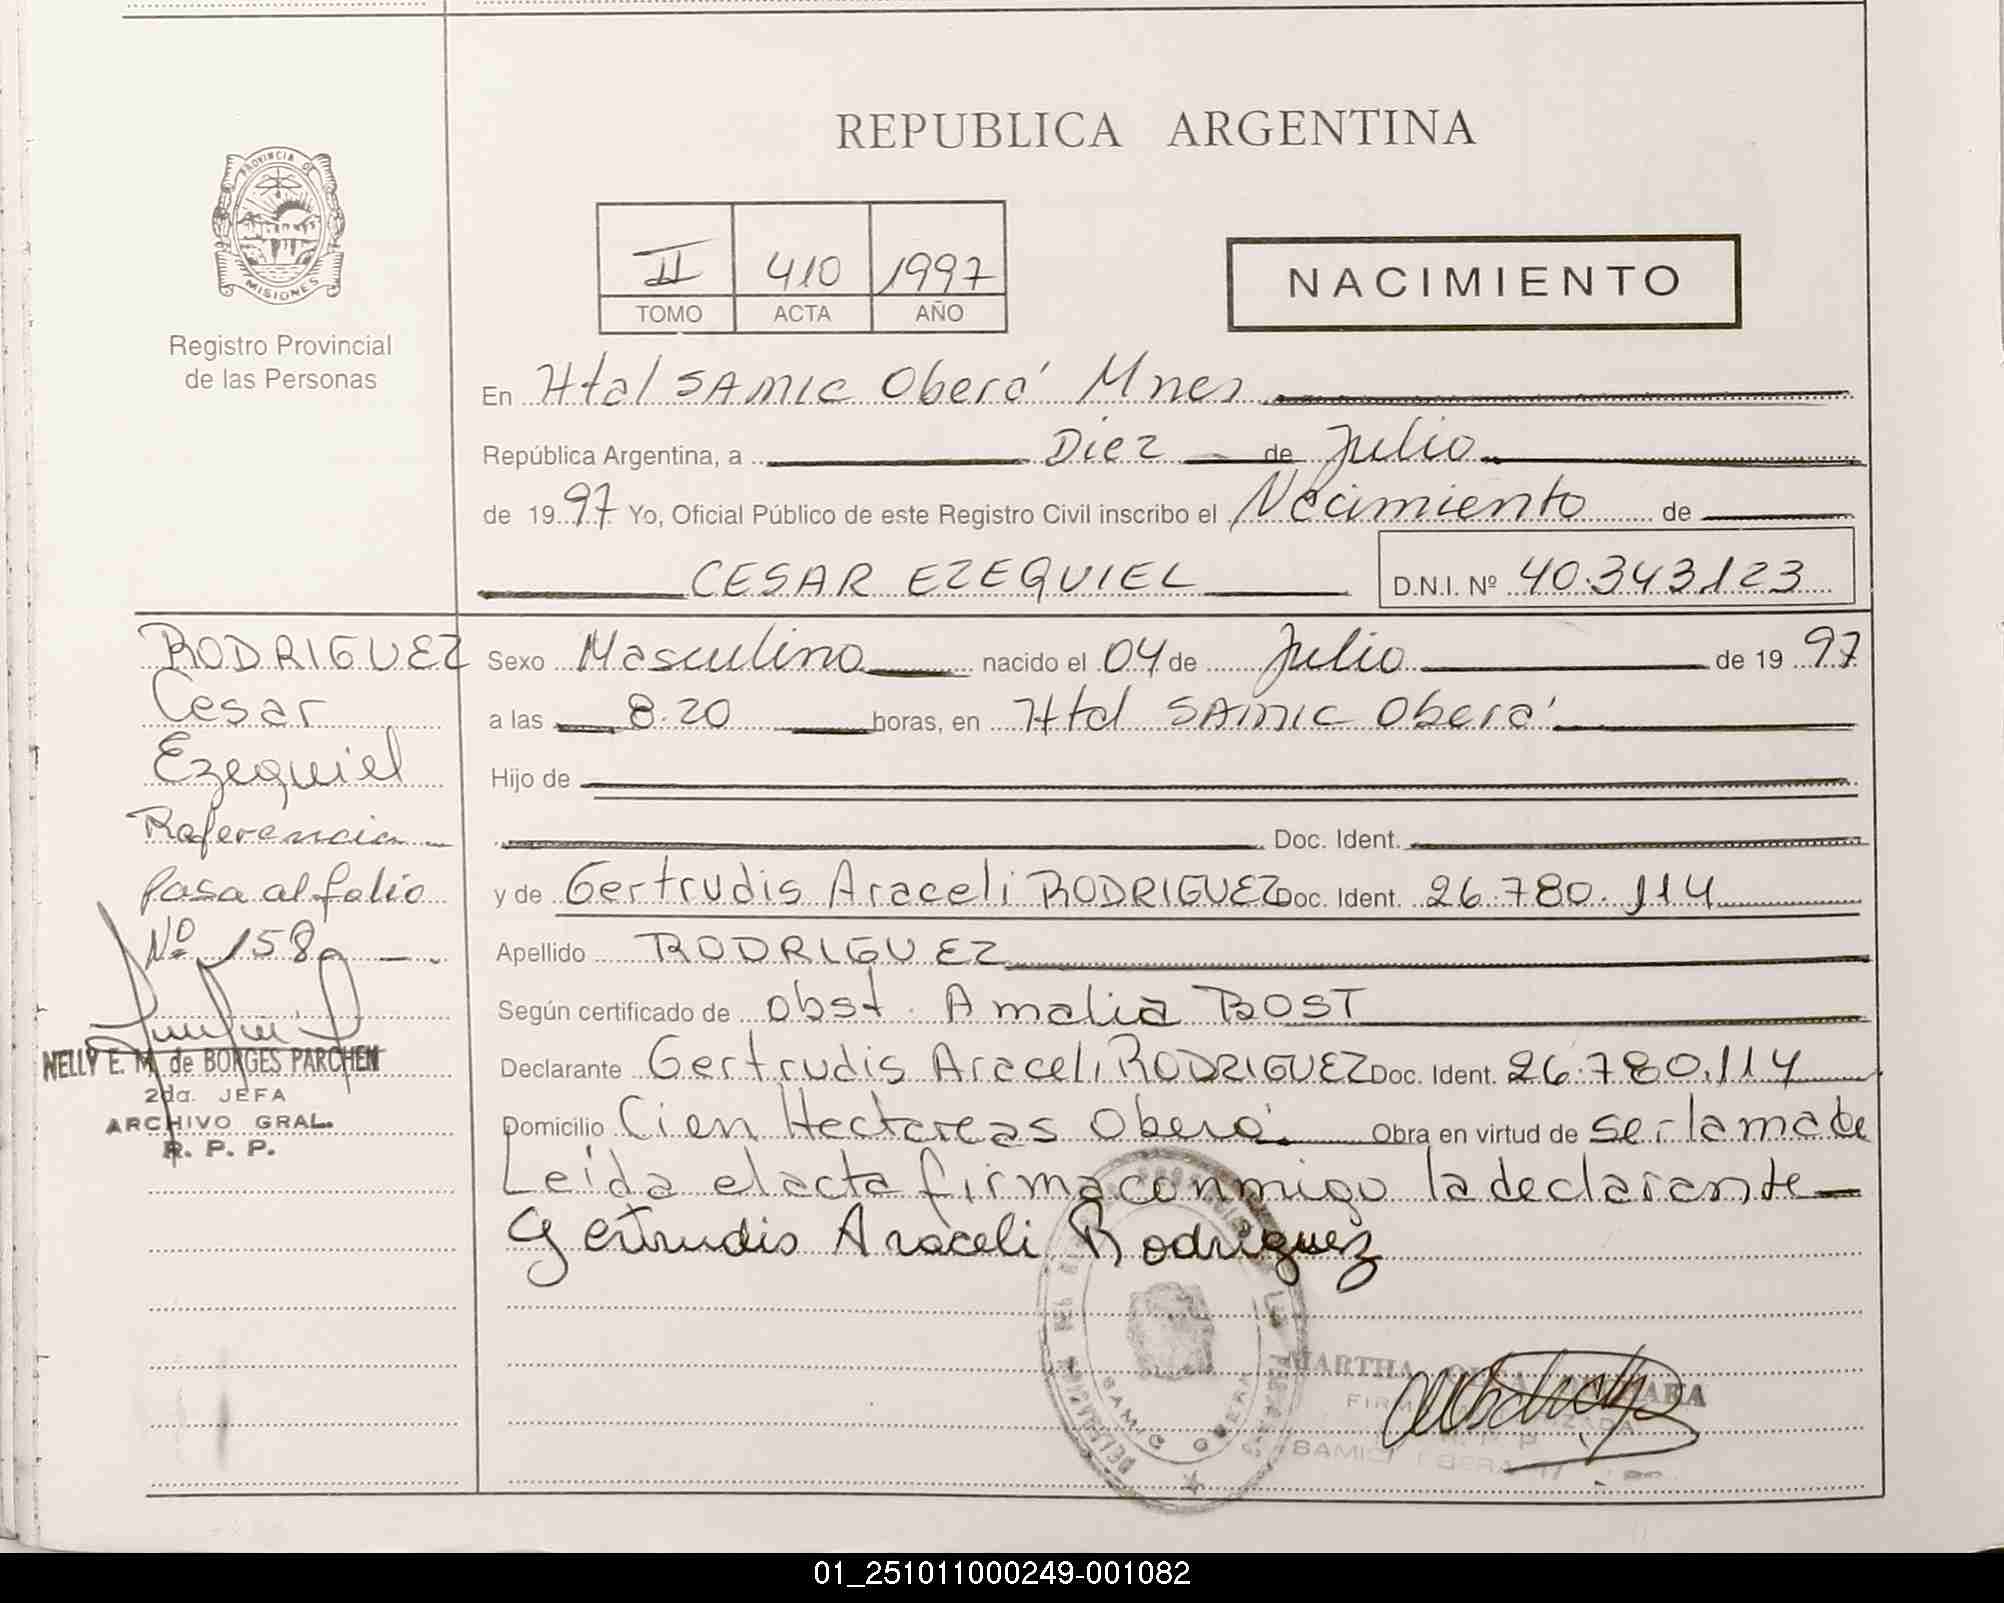 REPUBLICA ARGENTINA
PROVINCIA DE
MISIONES
Registro Provincial
de las Personas
II 410 1997
TOMO ACTA AÑO
NACIMIENTO
En Htal SAMIC Oberá Mnes
República Argentina, a Diez de Julio
de 1997 Yo, Oficial Público de este Registro Civil inscribo el Nacimiento de
CESAR EZEQUIEL D.N.I. Nº 40.343.123
RODRIGUEZ
Cesar
Ezequiel
Referencia
pasa al folio
Nº 158
NELLY E. M. de BORGES PARCHEN
2da. JEFA
ARCHIVO GRAL.
R. P. P.
Sexo Masculino nacido el 04 de Julio de 1997
a las 8.20 horas, en Htal SAMIC Oberá
Hijo de
Doc. Ident.
y de Gertrudis Araceli RODRIGUEZ Doc. Ident. 26.780.114
Apellido RODRIGUEZ
Según certificado de obst. Amalia BOST
Declarante Gertrudis Araceli RODRIGUEZ Doc. Ident. 26.780.114
Domicilio Cien Hectareas Oberá. Obra en virtud de ser la madre
Leída el acta firma conmigo la declarante
Gertrudis Araceli Rodriguez
SAMIC OBERA
MARTHA
SAMIC OBERA
01_251011000249-001082